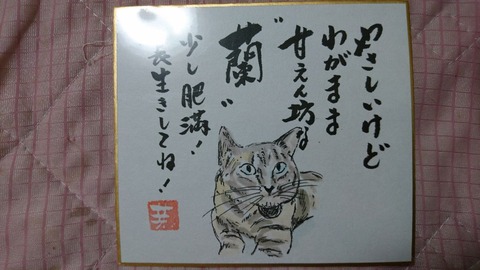 やさしいけど
わがまま
甘えん坊な
"蘭"
少し肥満!
長生きしてね!